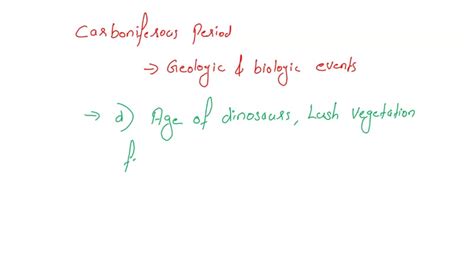 Carboniferous Period
→ Geologic & biologic events
→ d) Age of dinosaurs, Lush vegetation
f